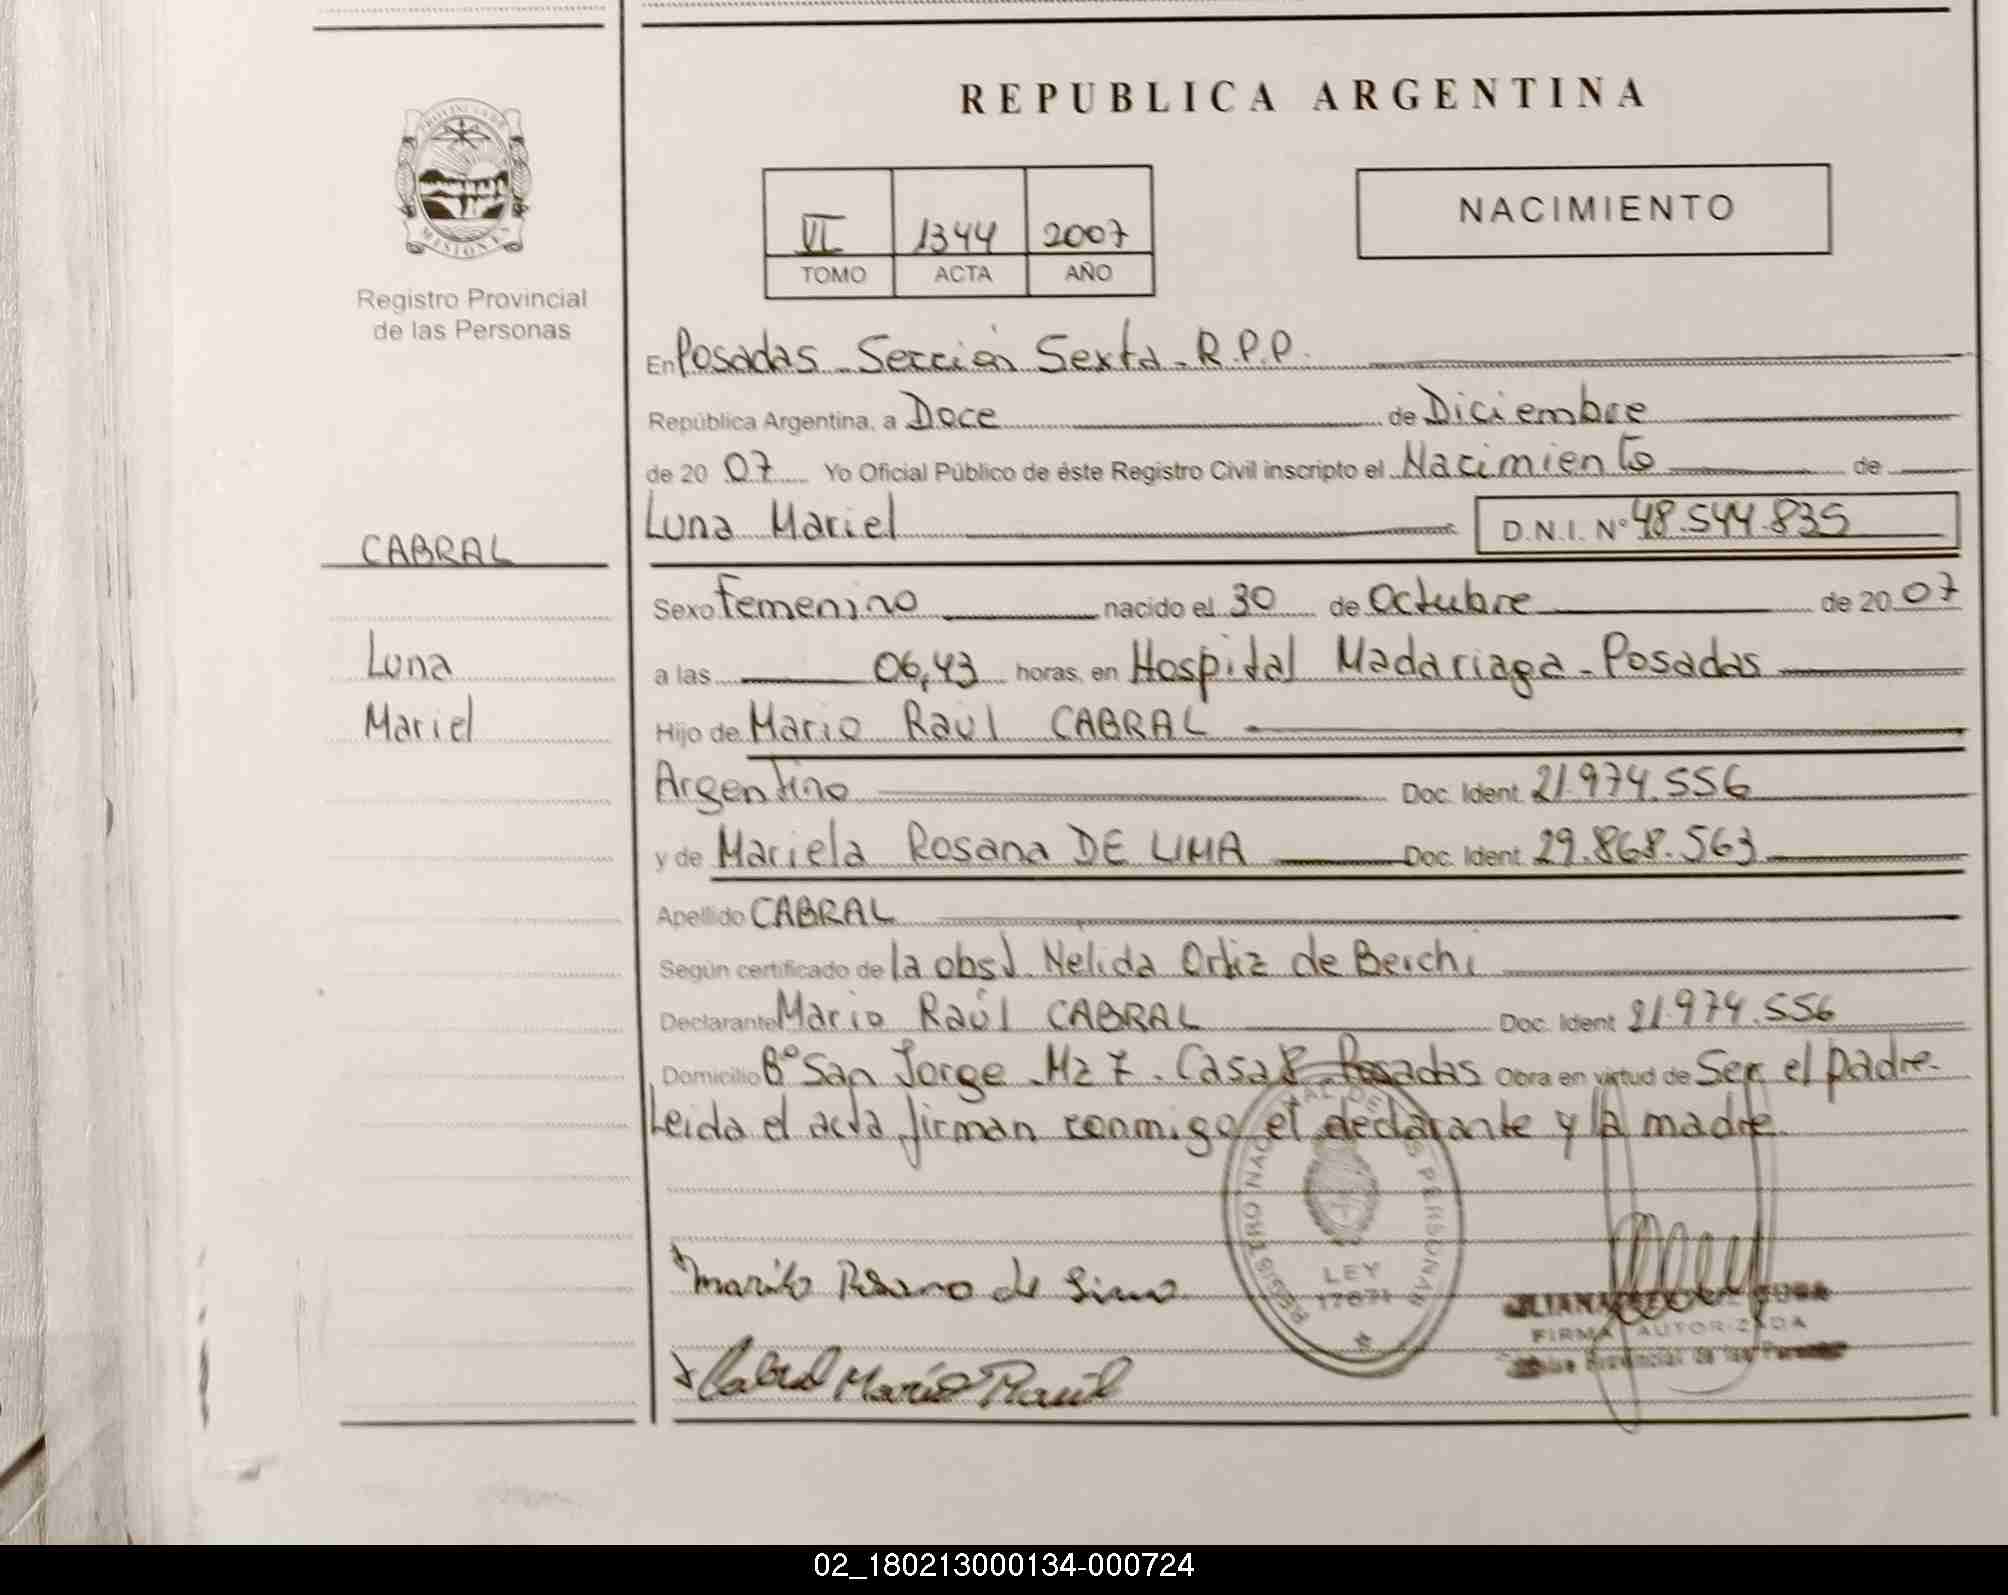 REPUBLICA ARGENTINA
PROVINCIA DE
MISIONES
Registro Provincial
de las Personas
VI 1344 2007
TOMO ACTA AÑO
NACIMIENTO
En Posadas - Sección Sexta - R.P.P.
República Argentina, a Doce de Diciembre
de 20 07 Yo Oficial Público de éste Registro Civil inscripto el Nacimiento de
Luna Mariel D.N.I. Nº 48.544.835
CABRAL
Sexo Femenino nacido el 30 de Octubre de 20 07
Luna
a las 06,43 horas, en Hospital Madariaga - Posadas
Mariel
Hijo de Mario Raúl CABRAL
Argentino Doc. Ident. 21.974.556
y de Mariela Rosana DE LIMA Doc. Ident. 29.868.563
Apellido CABRAL
Según certificado de la obst. Nelida Ortiz de Berchi
Declarante Mario Raúl CABRAL Doc. Ident. 21.974.556
Domicilio Bº San Jorge - Mz 7 - Casa 8 - Posadas Obra en virtud de Ser el padre -
Leida el acta firman conmigo el declarante y la madre.
REGISTRO NACIONAL DE LAS PERSONAS
LEY
17671
FIRMA AUTORIZADA
Provincial de las Personas
Cabral Mario Raúl
02_180213000134-000724